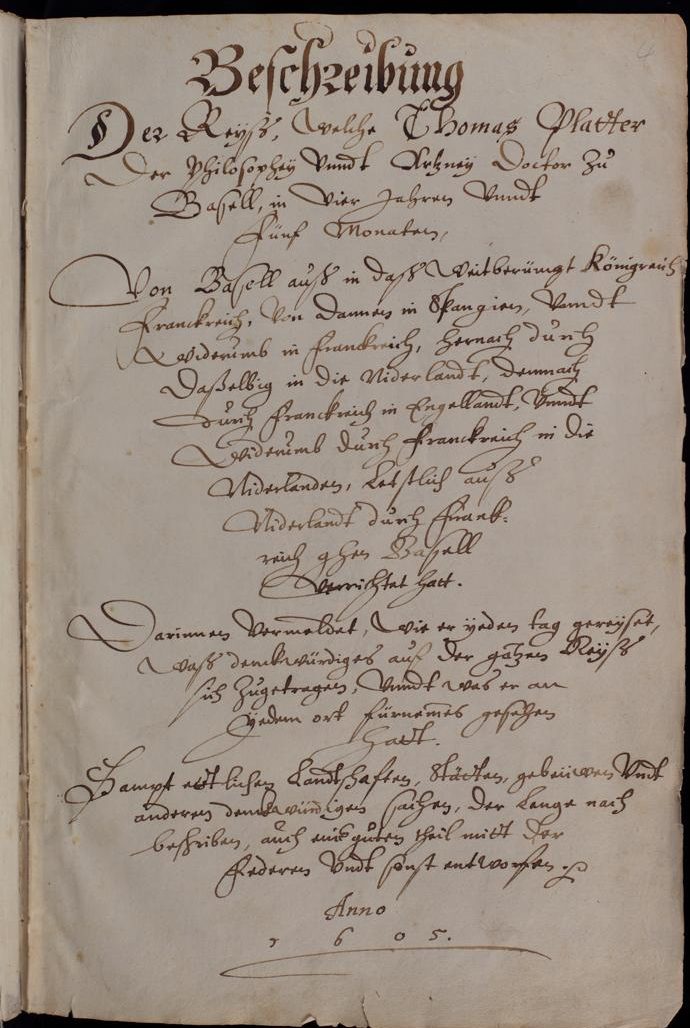 Beschreibung
Der Reyß, welche Thomas Platter
Der Philosophey vnndt Artzney Doctor zu
Basell, in vier Jahren vnndt
fünf Monaten,
Von Basell auß in daß weitberümpt Königreich
Franckreich, von dannen in Spangien, vnndt
widerumb in Franckreich, hernach durch
daßelbig in die Niderlandt, demnach
durch Franckreich in Engellandt, vnndt
widerumb durch Franckreich in die
Niderlanden, letstlich auß
Niderlandt durch Franck-
reich ghen Basell
verrichtet hatt.
Darinnen vermeldet, wie er yeden tag gereyset,
waß denckwürdiges auf der gantzen Reyß
sich zugetragen, vnndt was er an
yedem ort fürnemmes gesehen
hatt.
Sampt ettlichen Landtschaften, Stätten, gebeüwen vndt
anderen denckwürdigen sachen, der lenge nach
beschriben, auch ein guten theil mitt der
Federen vndt sonst entworfen.
Anno
1605.